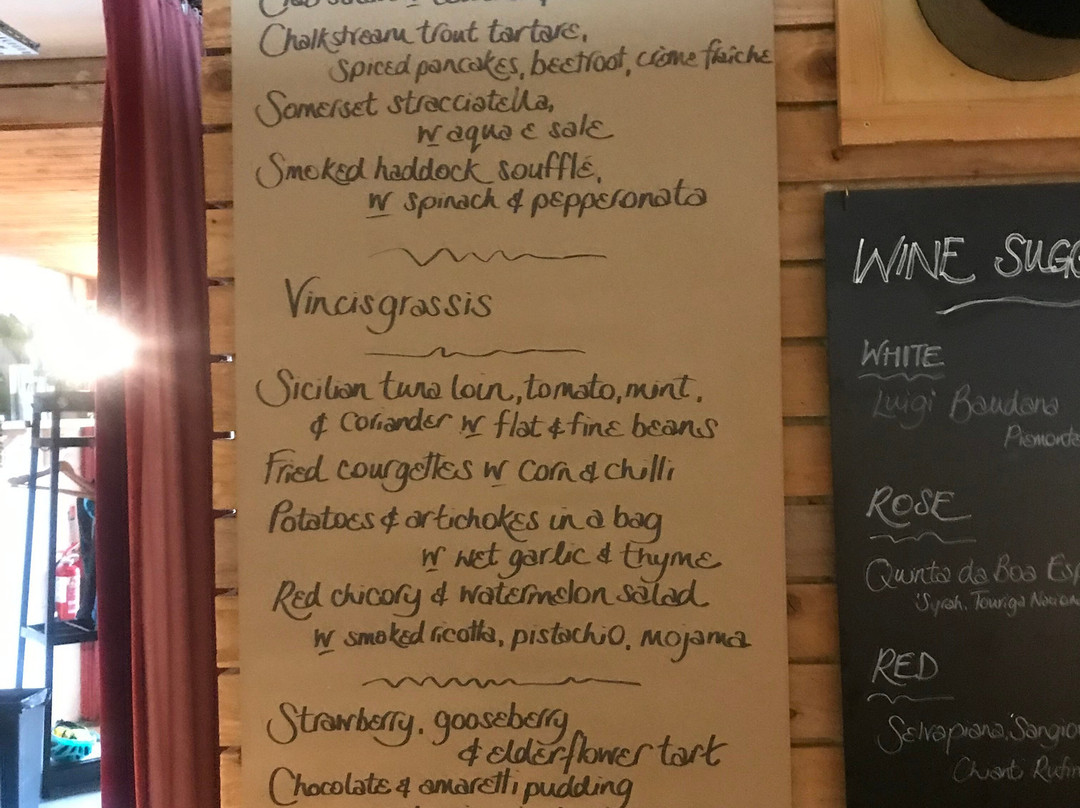 Chalkstream trout tartare,
Spiced pancakes, beetroot, crème fraîche
Somerset stracciatella,
w aqua e sale
Smoked haddock soufflé,
w spinach & pepperonata
Vincisgrassis
Sicilian tuna loin, tomato, mint,
& coriander w flat & fine beans
Fried courgettes w corn & chilli
Potatoes & artichokes in a bag
w wet garlic & thyme
Red chicory & watermelon salad
w smoked ricotta, pistachio, mojama
Strawberry, gooseberry
& elderflower tart
Chocolate & amaretti pudding
WINE SUGG
WHITE
Luigi Baudana
Piemonte
ROSE
Quinta da Boa Esp
'Syrah, Touriga Nacion
RED
Selvapiana, 'Sangio
Chianti Rufin